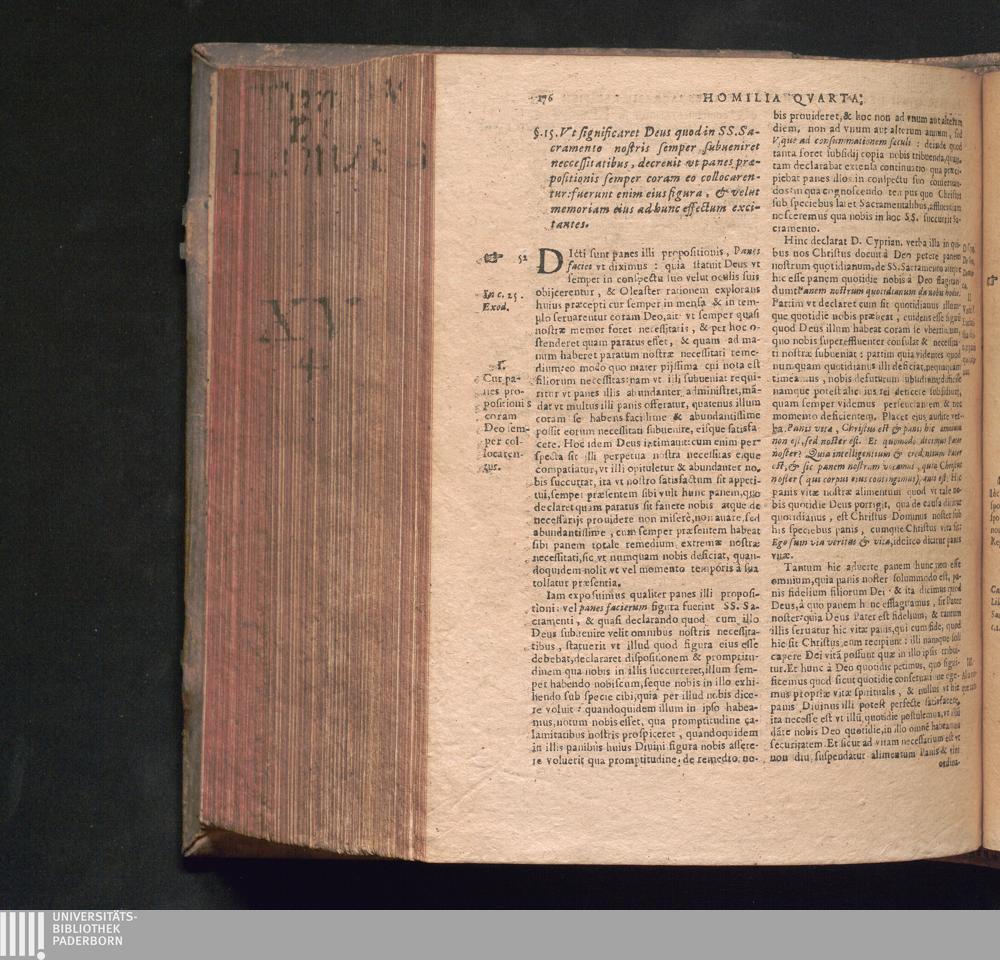 176
HOMILIA QVARTA.
§.15. Vt significaret Deus quod in SS. Sa-
cramento nostris semper subueniret
neccessitatibus, decreuit vt panes præ-
positionis semper coram eo collocaren-
tur: fuerunt enim eius figura, & velut
memoriam eius ad hunc effectum exci-
tantes.
52
DIcti sunt panes illi propositionis, Panes
facies vt diximus: quia statuit Deus vt
semper in conspectu suo velut oculis suis
obijcerentur, & Oleaster rationem explorans
huius præcepti cur semper in mensa & in tem-
plo seruarentur coram Deo, ait vt semper quasi
nostræ memor foret necessitatis, & per hoc o-
stenderet quam paratus esset, & quam ad ma-
num haberet paratum nostræ necessitati reme-
dium: eo modo quo mater pijssima cui nota est
filiorum necessitas: nam vt illi subueniat requi-
ritur vt panes illis abundanter administret, mã-
dat vt multus illi panis offeratur, quatenus illum
coram se habens facilime & abundantissime
possit eorum necessitati subuenire, eisque satisfa
cere. Hoc idem Deus intimauit: cum enim per-
specta sit illi perpetua nostra necessitas eique
compatiatur, vt illi opituletur & abundanter no-
bis succurrat, ita vt nostro satisfactum sit appeti-
tui, semper præsentem sibi vult hunc panem, quo
declaret quam paratus sit fauere nobis atque de
necessarijs prouidere non miserè, non auarè, sed
abundantissime, cum semper præsentem habeat
sibi panem totale remedium extremæ nostræ
necessitati, sic vt numquam nobis deficiat, quan-
doquidem nolit vt vel momento temporis à sua
tollatur præsentia.
Iam exposuimus qualiter panes illi proposi-
tionis vel panes facierum figura fuerint SS. Sa-
cramenti, & quasi declarando quod cum illo
Deus subuenire velit omnibus nostris necessita-
tibus, statuerit vt illud quod figura eius esse
debebat, declararet dispositionem & promptitu-
dinem qua nobis in illis succurreret, illum sem-
per habendo nobiscum, seque nobis in illo exhi-
bendo sub specie cibi, quia per illud nobis dice-
re voluit: quandoquidem illum in ipso habea-
mus, notum nobis esset, qua promptitudine ca-
lamitatibus nostris prospiceret, quandoquidem
in illis panibus huius Diuini figura nobis assere-
re voluerit qua promptitudine de remedio no-
In c. 25.
Exod.
Cur pa-
nes pro-
positionis
coram
Deo sem-
per col-
locaren-
tur.
bis prouideret, & hoc non ad vnum aut alterum
diem, non ad vnum aut alterum annum, sed
Vsque ad consummationem sæculi: deinde quod
tanta foret subsidij copia nobis tribuenda, quan-
tam declarabat extensa continuatio qua præci-
piebat panes illos in conspectu suo conseruan-
dos: in qua cognoscendo tempus quo Christus
sub speciebus latet Sacramentalibus, affluentiam
nosceremus qua nobis in hoc SS. succurrit Sa-
cramento.
Hinc declarat D. Cyprian. verba illa in qui-
bus nos Christus docuit à Deo petere panem
nostrum quotidianum, de SS. Sacramento
hic esse panem quotidie nobis à Deo flagitan-
dum: Panem nostrum quotidianum da nobis hodie.
Partim vt declaret cum sit quotidianus illum-
que quotidie nobis præbeat, euidens esse signum
quod Deus illum habeat coram se vberrimum,
quo nobis supereffluenter consulat & necessita-
ti nostræ subueniat: partim quia videntes quod
numquam quotidianus illi deficiat, nequaquam
timeamus, nobis defuturum subsidium, difficile
namque potest alicuius rei deficere subsidium,
quam semper videmus perseuerantem & nec
momento deficientem. Placet eius audire ver-
ba. Panis vitæ, Christus est & panis hic omnium
non est, sed noster est. Et quomodo dicimus Pater
noster? Quia intelligentium & credentium Pater
est, & sic panem nostrum vocamus, quia Christus
noster (qui corpus eius contingimus), panis est. Hic
panis vitæ nostræ alimentum quod vt tale no-
bis quotidie Deus porrigit, qua de causa dicitur
quotidianus, est Christus Dominus noster sub
his speciebus panis, cumque Christus vita sit:
Ego sum via veritas & vita, ideirco dicitur panis
vitæ.
Tantum hic aduerte panem hunc non esse
omnium, quia panis noster solummodo est, pa-
nis fidelium filiorum Dei & ita dicimus quod
Deus, à quo panem hunc efflagitamus, sit Pater
noster: quia Deus Pater est fidelium, & tantum
illis seruatur hic vitæ panis, qui cum fide, quod
hic sit Christus, eum recipiunt: illi namque soli
capere Dei vitã possunt quæ in illo ipsis tribui-
tur. Et hunc à Deo quotidie petimus, quo signi-
ficemus quod sicut quotidie conseruatione ege-
mus propriæ vitæ spiritualis, & nullus vt hic
panis Diuinus illi potest perfecte satisfacere,
ita necesse est vt illũ, quotidie postulemus, vt illũ
dare nobis Deo quotidie, in illo omnẽ habeamus
securitatem. Et sicut ad vitam necessarium est vt
non diu suspendatur alimentum Panis & vini
ordina-
UNIVERSITÄTS-
BIBLIOTHEK
PADERBORN